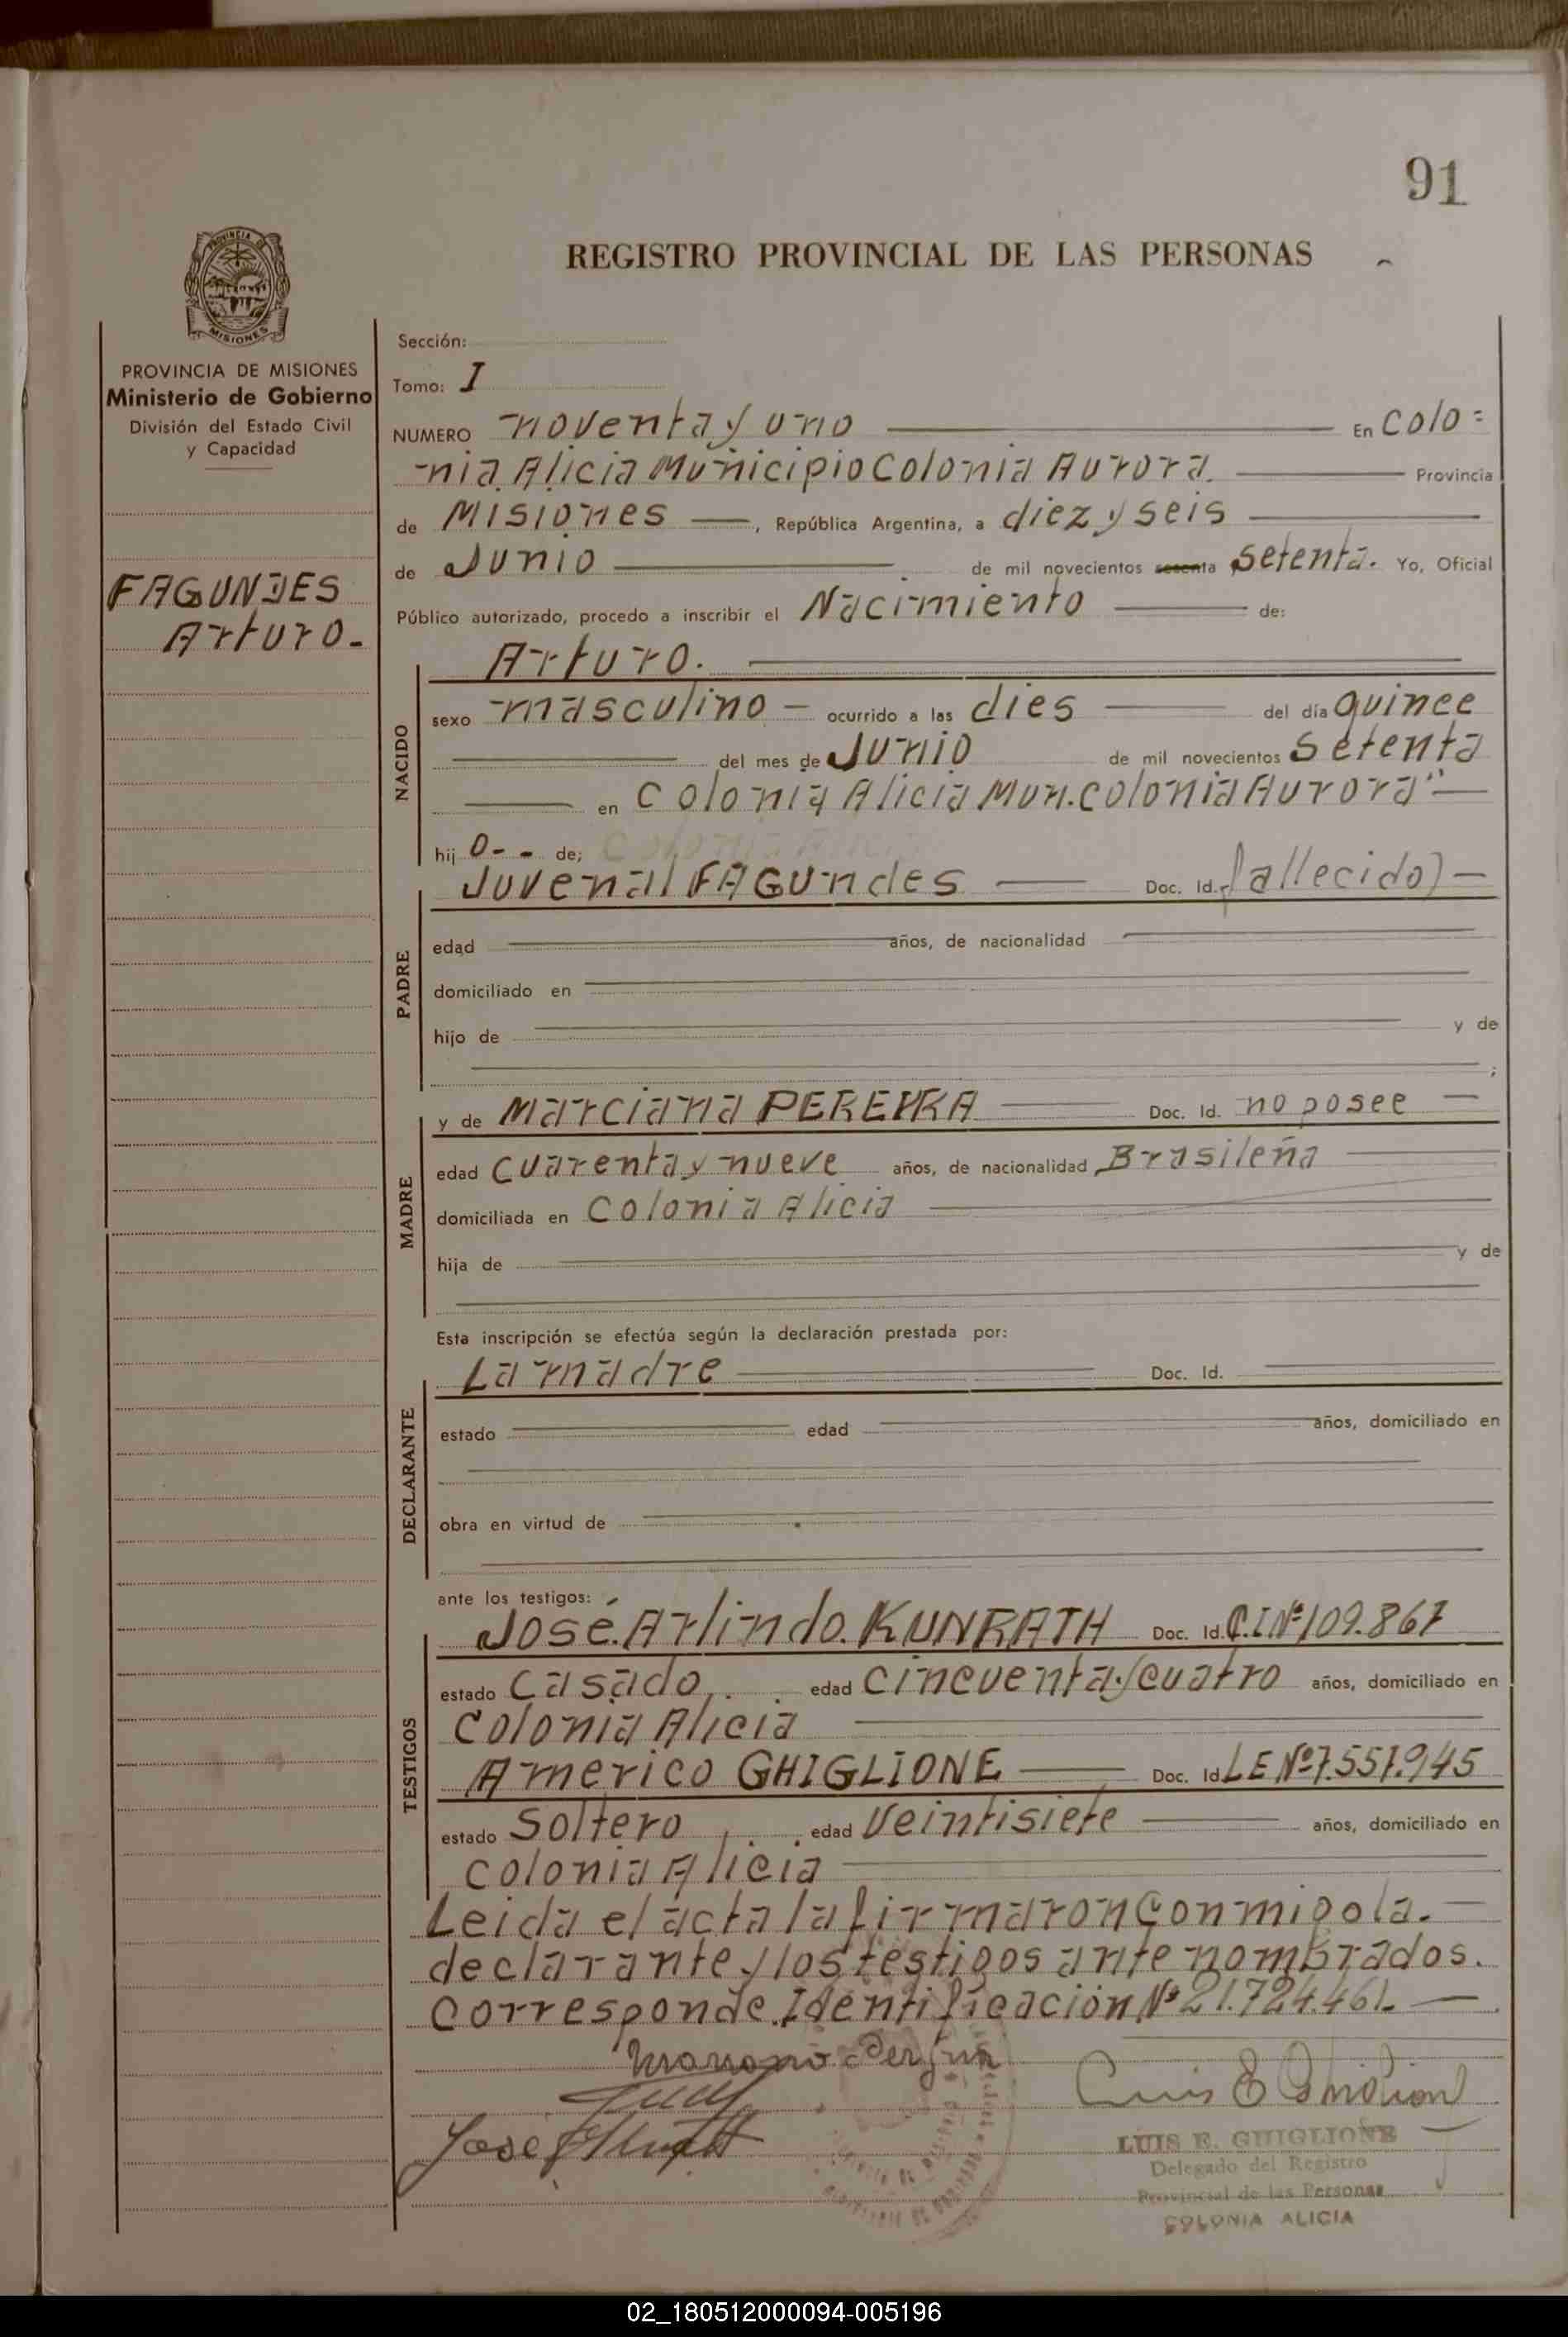 91
REGISTRO PROVINCIAL DE LAS PERSONAS
PROVINCIA DE
MISIONES
PROVINCIA DE MISIONES
Ministerio de Gobierno
División del Estado Civil
y Capacidad
FAGUNDES
Arturo.-
Sección:
Tomo: I
NUMERO noventa y uno En Colo=
nia Alicia Municipio Colonia Aurora. Provincia
de Misiones, República Argentina, a diez y seis
de Junio de mil novecientos sesenta setenta. Yo, Oficial
Público autorizado, procedo a inscribir el Nacimiento de:
NACIDO
Arturo.
sexo masculino - ocurrido a las dies del día quince
del mes de Junio de mil novecientos setenta
en Colonia Alicia Mun. Colonia Aurora"
hij o-- de;
PADRE
Juvenal FAGUndes Doc. Id. fallecido) —
edad años, de nacionalidad
domiciliado en
hijo de y de
;
MADRE
y de Marciana PEREYRA Doc. Id. no posee —
edad cuarenta y nueve años, de nacionalidad Brasileña
domiciliada en Colonia Alicia
hija de y de
Esta inscripción se efectúa según la declaración prestada por:
DECLARANTE
La madre Doc. Id.
estado edad años, domiciliado en
obra en virtud de
ante los testigos:
TESTIGOS
José. Arlindo. KUNRATH Doc. Id. C.I.Nº109.867
estado Casado edad cincuenta y cuatro años, domiciliado en
Colonia Alicia
Americo GHIGLIONE Doc. Id. LE Nº7.557.945
estado Soltero edad Veintisiete años, domiciliado en
colonia Alicia
Leida el acta la firmaron conmigo la.
declarante y los testigos ante nombrados.
Corresponde. Identificación Nº 21.724.461.
LUIS E. GHIGLIONE
Delegado del Registro
Provincial de las Personas
COLONIA ALICIA
02_180512000094-005196